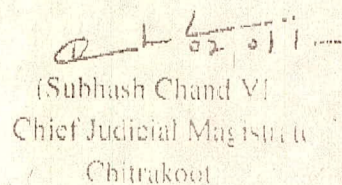 02/011
(Subhash Chand VI
Chief Judicial Magistrate
Chitrakoot